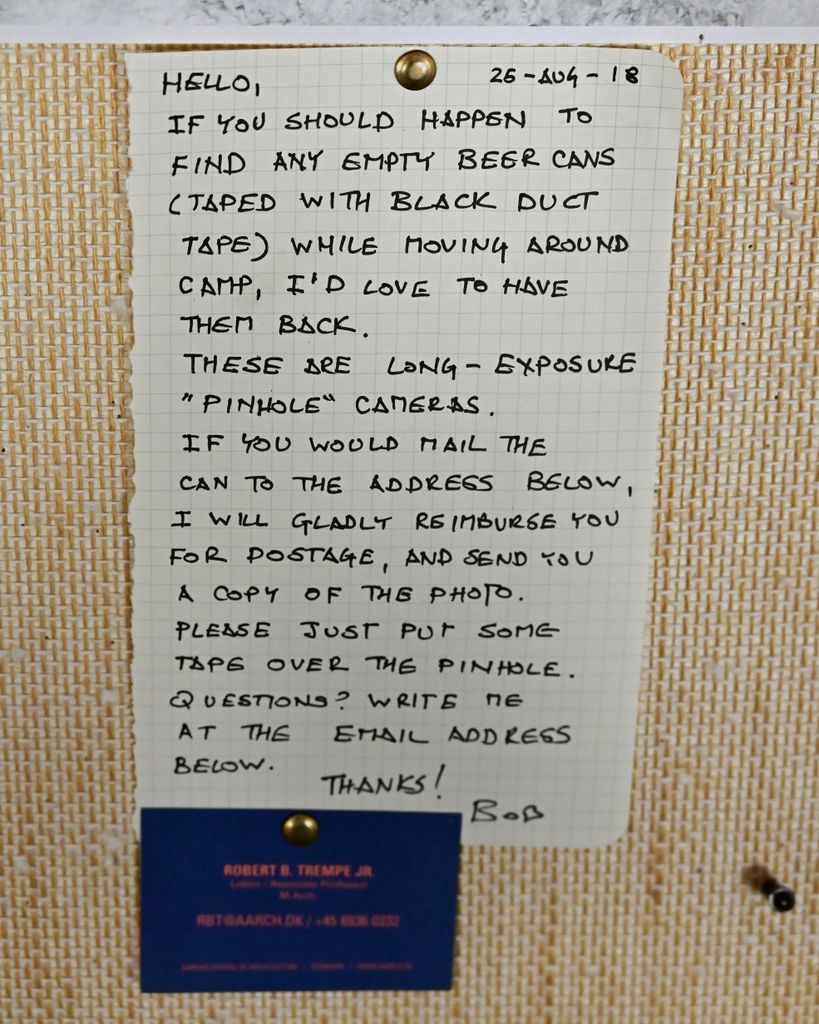 HELLO, 25-AUG-18
IF YOU SHOULD HAPPEN TO
FIND ANY EMPTY BEER CANS
(TAPED WITH BLACK DUCT
TAPE) WHILE MOVING AROUND
CAMP, I'D LOVE TO HAVE
THEM BACK.
THESE ARE LONG-EXPOSURE
"PINHOLE" CAMERAS.
IF YOU WOULD MAIL THE
CAN TO THE ADDRESS BELOW,
I WILL GLADLY REIMBURSE YOU
FOR POSTAGE, AND SEND YOU
A COPY OF THE PHOTO.
PLEASE JUST PUT SOME
TAPE OVER THE PINHOLE.
QUESTIONS? WRITE ME
AT THE EMAIL ADDRESS
BELOW.
THANKS!
BOB
ROBERT B. TREMPE JR.
Lektor / Associate Professor
M.Arch.
RBT@AARCH.DK / +45 8936 0232